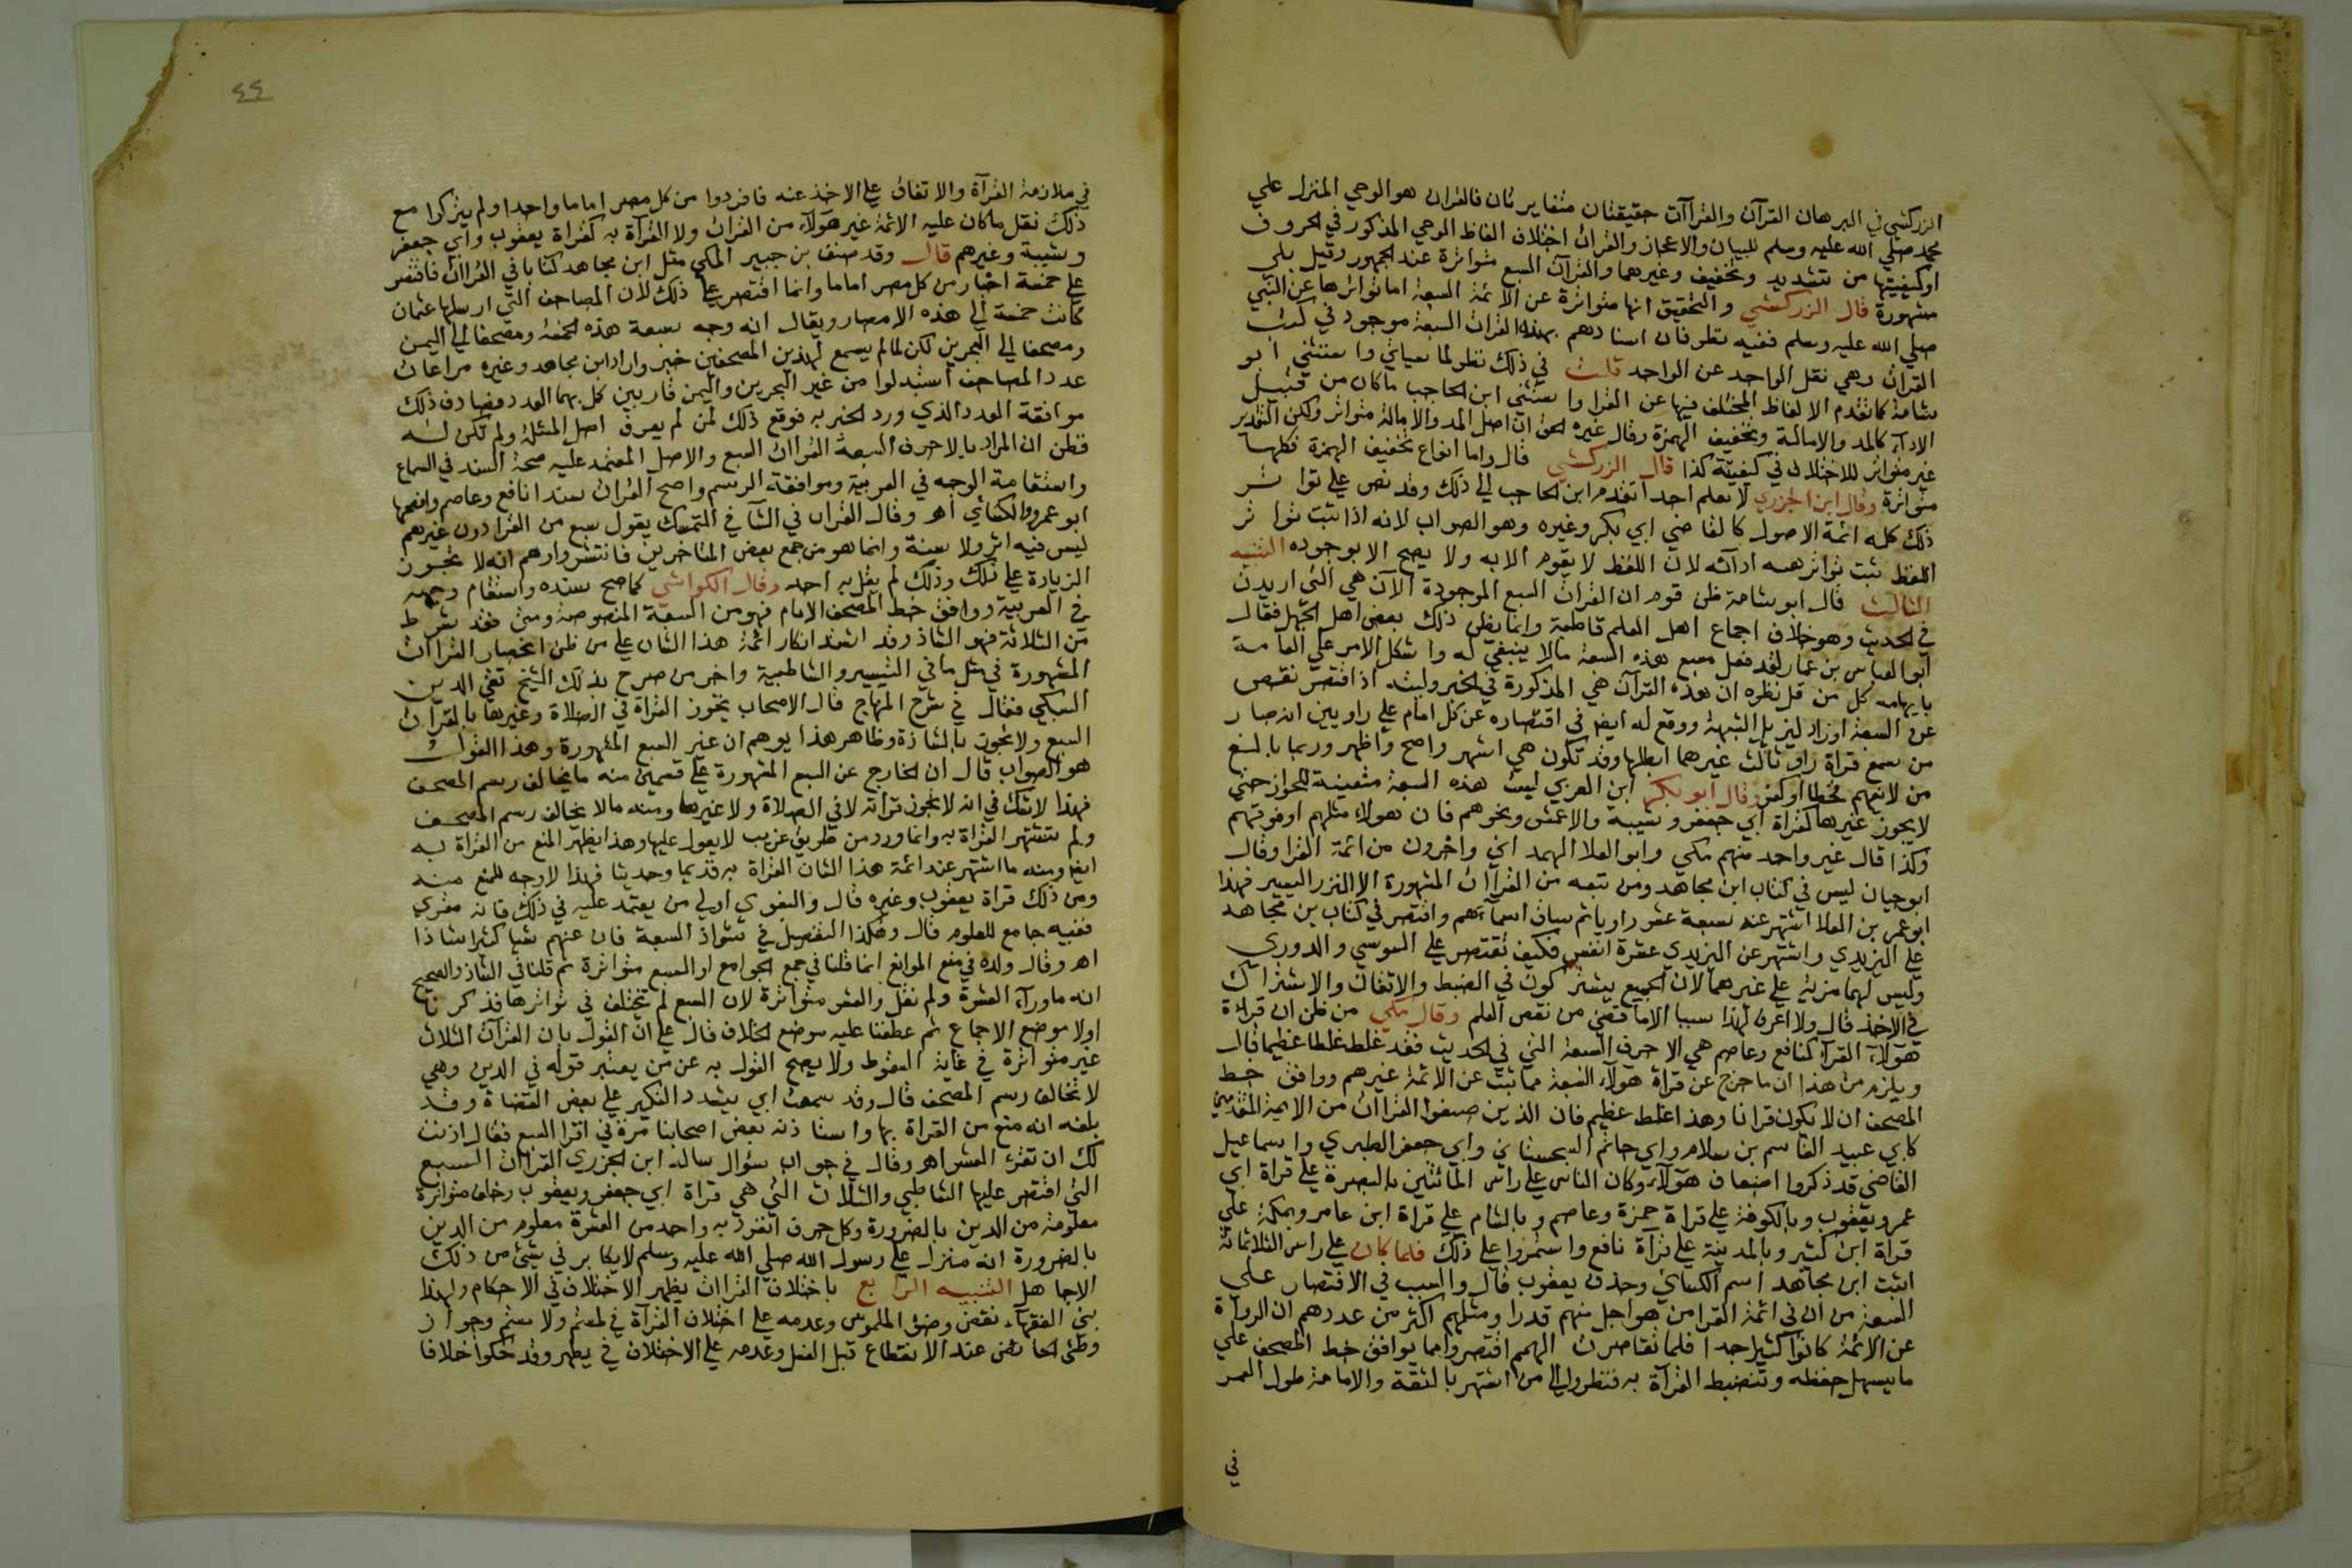 الزركشي في البرهان القرآن والقراآت حقيقتان متغايرتان فالقران هو الوحي المنزل علي
محمد صلي الله عليه وسلم للبيان والاعجاز والقرات اختلاف الفاظ الوحي المذكور في الحروف
او كيفيتها من تشديد وتخفيف وغيرهما والقرآت السبع متواترة عند الجمهور وقيل بلي
مشهورة قال الزركشي والتحقيق انها متواترة عن الائمة السبعة اما تواترها عن النبي
صلي الله عليه وسلم ففيه نظر فان اسنادهم بهذه القرات السبعة موجود في كتب
القرات وهي نقل الواحد عن الواحد قلت في ذلك نظر لما سياتي واستثني ابو
شامة كما تقدم الالفاظ المختلف فيها عن القرا واستثني ابن الحاجب ما كان من قبيل
الادآء كالمد والامالة وتخفيف الهمزة وقال غيره الحق ان اصل المد والامالة متواتر ولكن التقدير
غير متواتر للاختلاف في كيفيته كذا قال الزركشي قال واما انواع تخفيف الهمزة فكلها
متواترة وقال ابن الجزري لا نعلم احدا تقدم ابن الحاجب الي ذلك وقد نص علي تواتر
ذلك كله ائمة الاصول كالقاضي ابي بكر وغيره وهو الصواب لانه اذا ثبت تواتر
اللفظ ثبت تواتر هيئة ادآئه لان اللفظ لا يقوم الا به ولا يصح الا بوجوده التنبيه
الثالث قال ابو شامة ظن قوم ان القرات السبع الموجودة الآن هي التي اريدت
في الحديث وهو خلاف اجماع اهل العلم قاطبة وانما يظن ذلك بعض اهل الجهل فقال
ابو العباس بن عمار لقد فعل مسبع هذه السبعة مالا ينبغي له واشكل الامر علي العامة
بايهامه كل من قل نظره ان هذه القرآت هي المذكورة في الخبر وليته اذا اقتصر نقص
عن السبعة او زاد ليزيل الشبهة ووقع له ايضا في اقتصاره عن كل امام علي راويين انه صار
من سمع قراة راو ثالث غيرهما ابطلها وقد تكون هي اشهر واصح واظهر وربما بالغ
من لا يفهم فخطا او كفر وقال ابو بكر ابن العربي ليست هذه السبعة متعينة للجواز حتي
لا يجوز غيرها كقراة ابي جعفر وشيبة والاعمش ونحوهم فان هولاء مثلهم او فوقهم
وكذا قال غير واحد منهم مكي وابو العلا الهمداني واخرون من ائمة القرا وقال
ابو حيان ليس في كتاب ابن مجاهد ومن تبعه من القراآت المشهورة الا النزر اليسير فهذا
ابو عمر بن العلا اشتهر عنه سبعة عشر راويا ثم ساق اسمآءهم واقتصر في كتاب بن مجاهد
علي اليزيدي واشتهر عن اليزيدي عشرة انفس فكيف نقتصر علي السوسي والدوري
وليس لهما مزية علي غيرهما لان الجميع يشتركون في الضبط والاتقان والاشتراك
في الاخذ قال ولا اعرف لهذا سببا الا ما قضي من نقص العلم وقال مكي من ظن ان قراءة
هولآء القرآ كنافع وعاصم هي الاحرف السبعة التي في الحديث فقد غلط غلطا عظيما قال
ويلزم من هذا ان ما خرج عن قراة هولآء السبعة مما ثبت عن الائمة غيرهم ووافق خط
المصحف ان لا يكون قرانا وهذا غلط عظيم فان الذين صنفوا القراات من الايمة المتقدمين
كابي عبيد القاسم بن سلام وابي حاتم السجستاني وابي جعفر الطبري واسماعيل
القاضي قد ذكروا اضعاف هولآء وكان الناس علي راس المائتين بالبصرة علي قراة ابي
عمرو ويعقوب وبالكوفة علي قراة حمزة وعاصم وبالشام علي قراة ابن عامر وبمكة علي
قراة ابن كثير وبالمدينة علي قرآة نافع واستمروا علي ذلك فلما كان علي راس الثلاثمائة
اثبت ابن مجاهد اسم الكسائي وحذف يعقوب قال والسبب في الاقتصار علي
السبعة مع ان في ائمة القرا من هو اجل منهم قدرا ومثلهم اكثر من عددهم ان الرواة
عن الائمة كانوا كثيرا جدا فلما تقاصرت الهمم اقتصروا مما يوافق خط المصحف علي
ما يسهل حفظه وتنضبط القرآة به فنظروا الي من اشتهر بالثقة والامانة وطول العمر
في
٤٤
في ملازمة القرآة والاتفاق علي الاخذ عنه فافردوا من كل مصر اماما واحدا ولم يتركوا مع
ذلك نقل ما كان عليه الائمة غير هولآء من القرات ولا القرآة به كقراة يعقوب وابي جعفر
وشيبة وغيرهم قال وقد صنف بن جبير المكي مثل ابن مجاهد كتابا في القراات فاقتصر
علي خمسة اختار من كل مصر اماما وانما اقتصر علي ذلك لان المصاحف التي ارسلها عثمان
كانت خمسة الي هذه الامصار ويقال انه وجه بسبعة هذه الخمسة ومصحفا الي اليمن
ومصحفا الي البحرين لكن لما لم يسمع لهذين المصحفين خبر واراد ابن مجاهد وغيره مراعات
عدد المصاحف استبدلوا من غير البحرين واليمن قاريين كمل بهما العدد فصادف ذلك
موافقة العدد الذي ورد الخبر به فوقع ذلك لمن لم يعرف اصل المسئلة ولم تكن له
فظن ان المراد بالاحرف السبعة القراات السبع والاصل المعتمد عليه صحة السند في السماع
واستقامة الوجه في العربية وموافقة الرسم واصح القرات سندا نافع وعاصم وافصحها
ابو عمرو والكسائي اهـ وقال القراب في الشافي التمسك يقول سبع من القرا دون غيرهم
ليس فيه اثر ولا سنة وانما هو من جمع بعض المتاخرين فانتشر واوهم انه لا تجوز
الزيادة علي ذلك وذلك لم يقل به احد وقال الكواشي كل ما صح سنده واستقام وجهه
في العربية ووافق خط المصحف الامام فهو من السبعة المنصوصة ومتي فقد شرط
من الثلاثة فهو الشاذ وقد اشتد انكار ائمة هذا الشان علي من ظن انحصار القراات
المشهورة في مثل ما في التيسير والشاطبية واخر من صرح بذلك الشيخ تقي الدين
السبكي فقال في شرح المنهاج قال الاصحاب تجوز القراة في الصلاة وغيرها بالقرآت
السبع ولا تجوز بالشاذة وظاهر هذا يوهم ان غير السبع المشهورة وهذا القول
هو الصواب قال ان الخارج عن السبع المشهورة علي قسمين منه ما يخالف رسم المصحف
فهذا لا شك في انه لا يجوز قرآته لا في الصلاة ولا غيرها ومنه مالا يخالف رسم المصحف
ولم تشتهر القراة به وانما ورد من طريق غريب لا يعول عليها وهذا يظهر المنع من القراة به
ايضا ومنه ما اشتهر عند ائمة هذا الشان القراة به قديما وحديثا فهذا لا وجه للمنع منه
ومن ذلك قراة يعقوب وغيره قال والبغوي اولي من يعتمد عليه في ذلك فانه مقري
فقيه جامع للعلوم قال وهكذا التفصيل في شواذ السبعة فان عنهم شيا كثيرا شاذا
اهـ وقال ولده في منع الموانع انما قلنا في جمع الجوامع او السبع متواترة ثم قلنا في الشاذ والصحيح
انه ماورآء العشرة ولم نقل والعشر متواترة لان السبع لم يختلف في تواترها فذكرنا
اولا موضع الاجماع ثم عطفنا عليه موضع الخلاف قال علي ان القول بان القرآت الثلاث
غير متواترة في غاية السقوط ولا يصح القول به عن من يعتبر قوله في الدين وهي
لا تخالف رسم المصحف قال وقد سمعت ابي يشدد النكير علي بعض القضاة وقد
بلغه انه منع من القراة بها واستاذنه بعض اصحابنا مرة في اقرا السبع فقال اذنت
لك ان تقرئ العشر اهـ وقال في جواب سؤال ساله ابن الجزري القراات السبع
التي اقتصر عليها الشاطبي والثلاث التي هي قراة ابي جعفر ويعقوب وخلف متواترة
معلومة من الدين بالضرورة وكل حرف انفرد به واحد من العشرة معلوم من الدين
بالضرورة انه منزل علي رسول الله صلي الله عليه وسلم لا يكابر في شئ من ذلك
الا جاهل التنبيه الرابع باختلاف القراات يظهر الاختلاف في الاحكام ولهذا
بني الفقهآء نقض وضوء الملموس وعدمه علي اختلاف القرآة في لمستم ولا مستم وجواز
وطئ الحائض عند الانقطاع قبل الغسل وعدمه علي الاختلاف في يطهر وقد حكوا خلافا